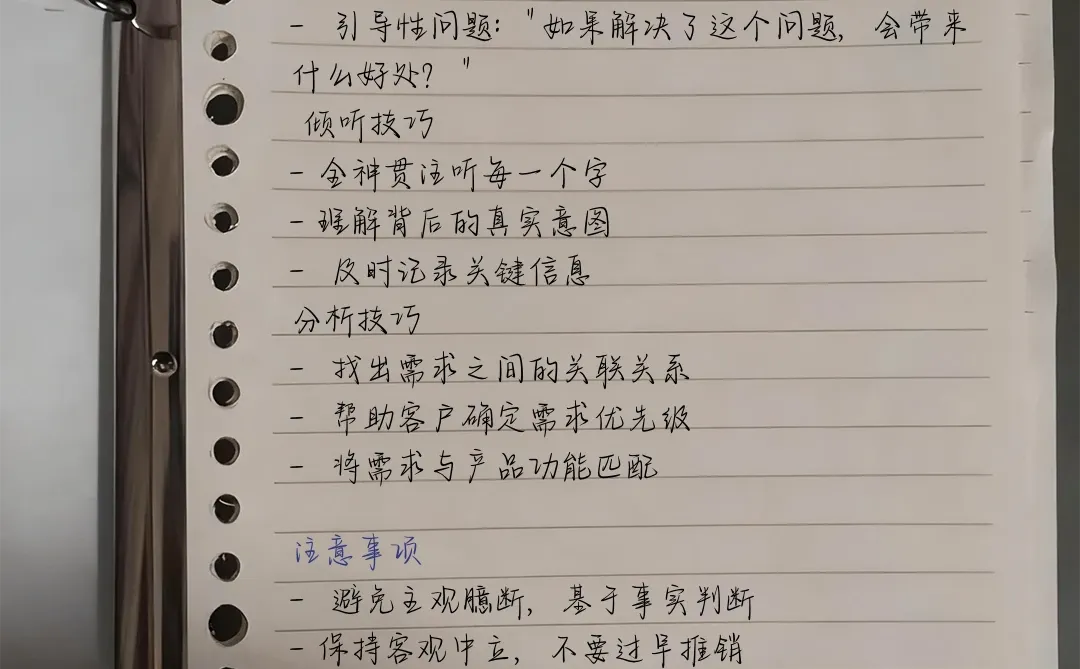 - 引导性问题："如果解决了这个问题，会带来
什么好处？"
倾听技巧
- 全神贯注听每一个字
- 理解背后的真实意图
- 及时记录关键信息
分析技巧
- 找出需求之间的关联关系
- 帮助客户确定需求优先级
- 将需求与产品功能匹配
注意事项
- 避免主观臆断，基于事实判断
- 保持客观中立，不要过早推销